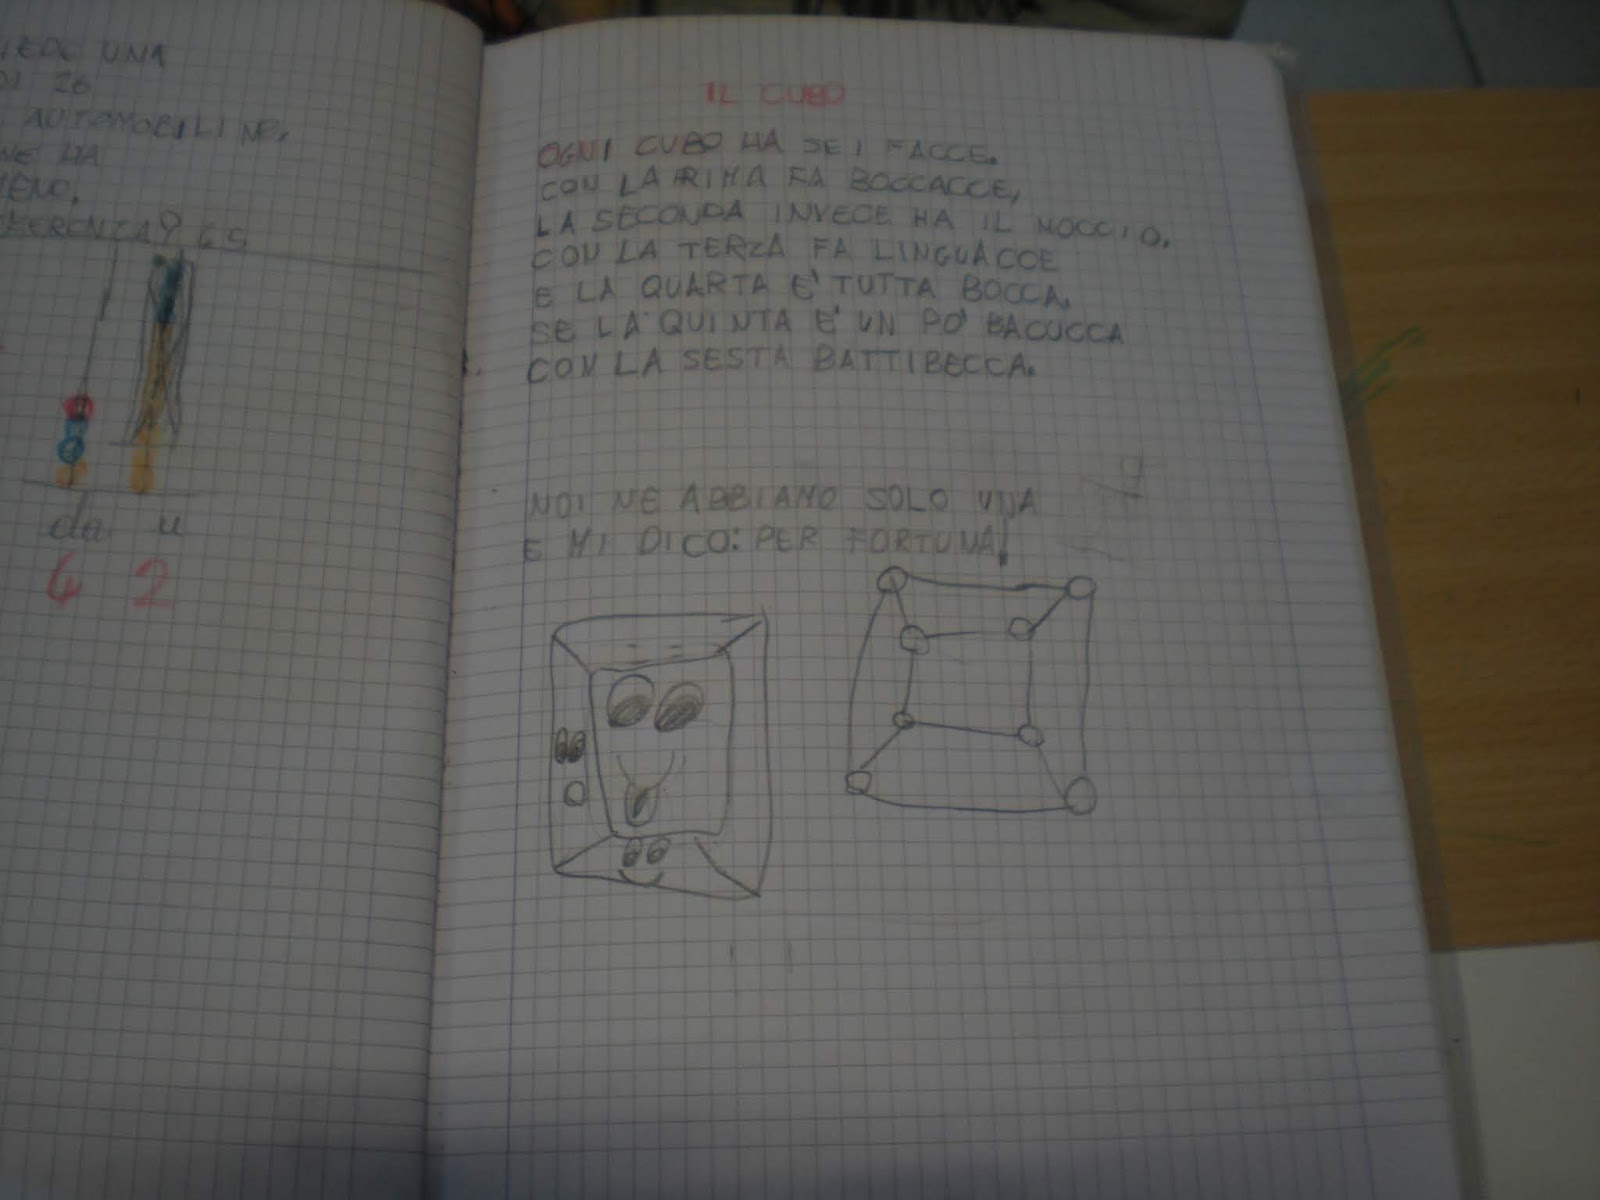 UNA
26
AUTOMOBILINE.
NE HA
MENO.
da u
4 2
IL CUBO
OGNI CUBO HA SEI FACCE.
CON LA RIMA FA BOCCACCE,
LA SECONDA INVECE HA IL MOCCIO.
CON LA TERZA FA LINGUACCE
E LA QUARTA E' TUTTA BOCCA.
SE LA QUINTA E' UN PO' BACUCCA
CON LA SESTA BATTIBECCA.
NOI NE ABBIAMO SOLO UNA
E MI DICO: PER FORTUNA!